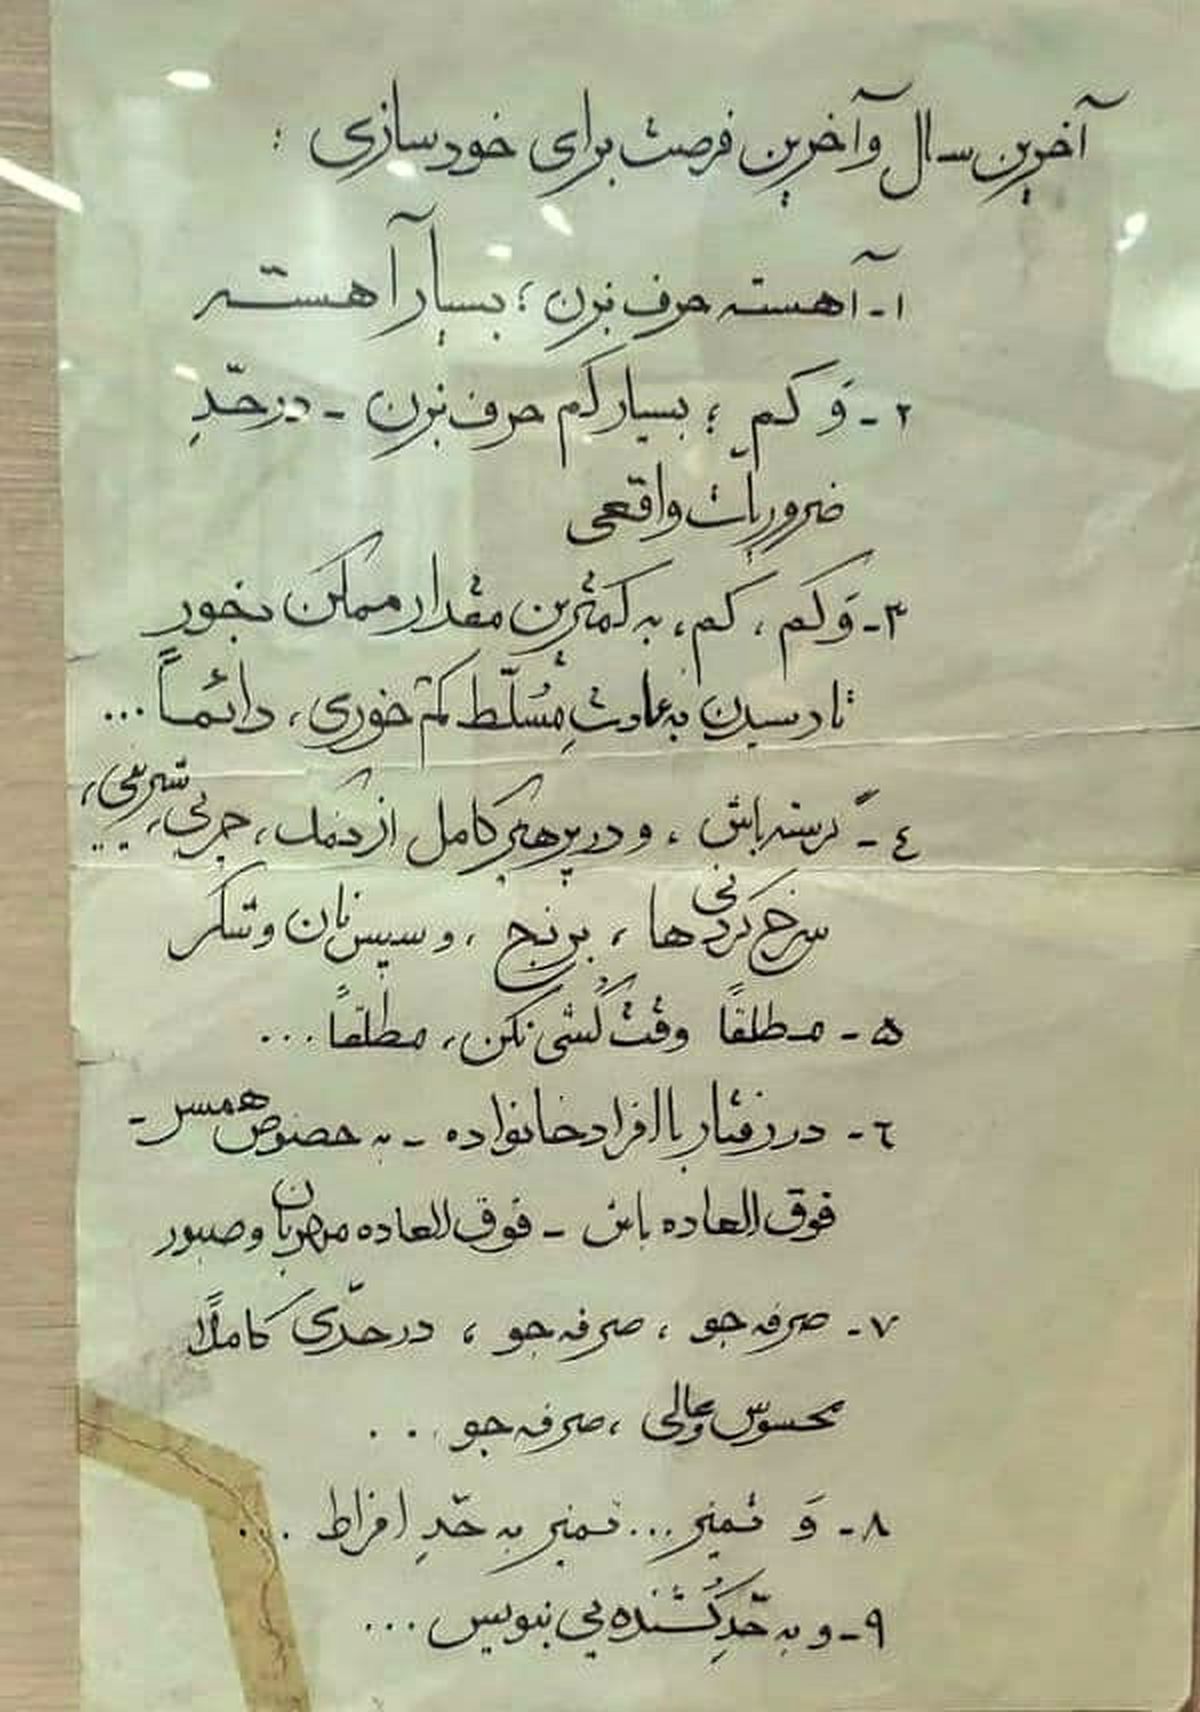 آخرین سال و آخرین فرصت برای خودسازی :
۱- آهسته حرف بزن ؛ بسیار آهسته
۲- وَ کم ؛ بسیار کم حرف بزن - در حدِّ
ضروریات واقعی
۳- وَ کم ، کم ، به کمترین مقدار ممکن بخور
تا رسیدن به عادتِ مُسلّط کم خوری ، دائماً ...
٤- گرسنه باش ، و در پرهیز کامل از نمک ، چربی ، شیرینی ،
سرخ کردنی ها ، برنج ، و سپس نان و شکر
۵- مطلقاً وقت کُشی نکن ، مطلقاً ...
٦- در رفتار با افراد خانواده - به خصوص همسر -
فوق العاده باش - فوق العاده مهربان و صبور
۷- صرفه جو ، صرفه جو ، در حدّی کاملاً
محسوس و عالی ، صرفه جو . . .
۸- وَ تمیز ... تمیز به حدِّ افراط ...
۹- و به حدِّ کُشنده یی بنویس ...